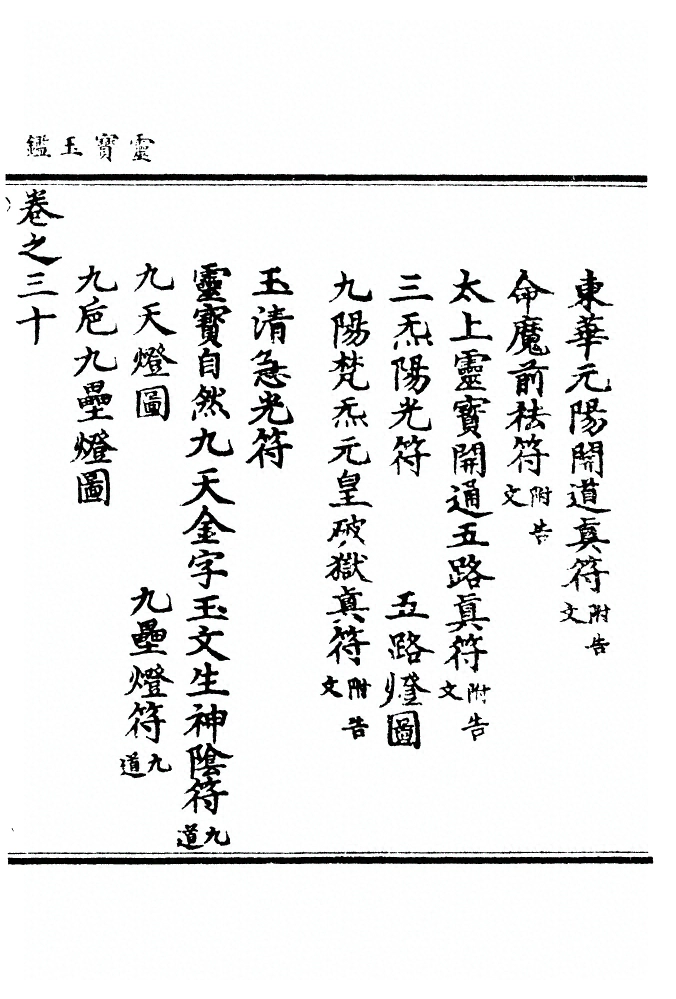 靈寶玉鑑
東華元陽開道眞符附告文
命魔前袪符附告文
太上靈寶開通五路眞符附告文
三炁陽光符 五路燈圖
九陽梵炁元皇破獄眞符附告文
玉清急光符
靈寶自然九天金字玉文生神陰符九道
九天燈圖 九壘燈符九道
九巵九壘燈圖
卷之三十